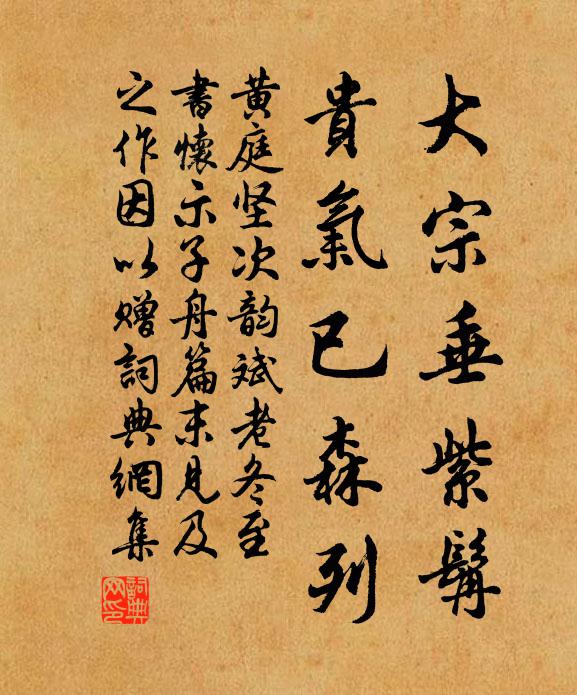 大宗垂紫髯
貴氣已森列
黄庭坚次韵斌老冬至
書懷示子舟篇末見及
之作因以贈詞典網集
詞典網印